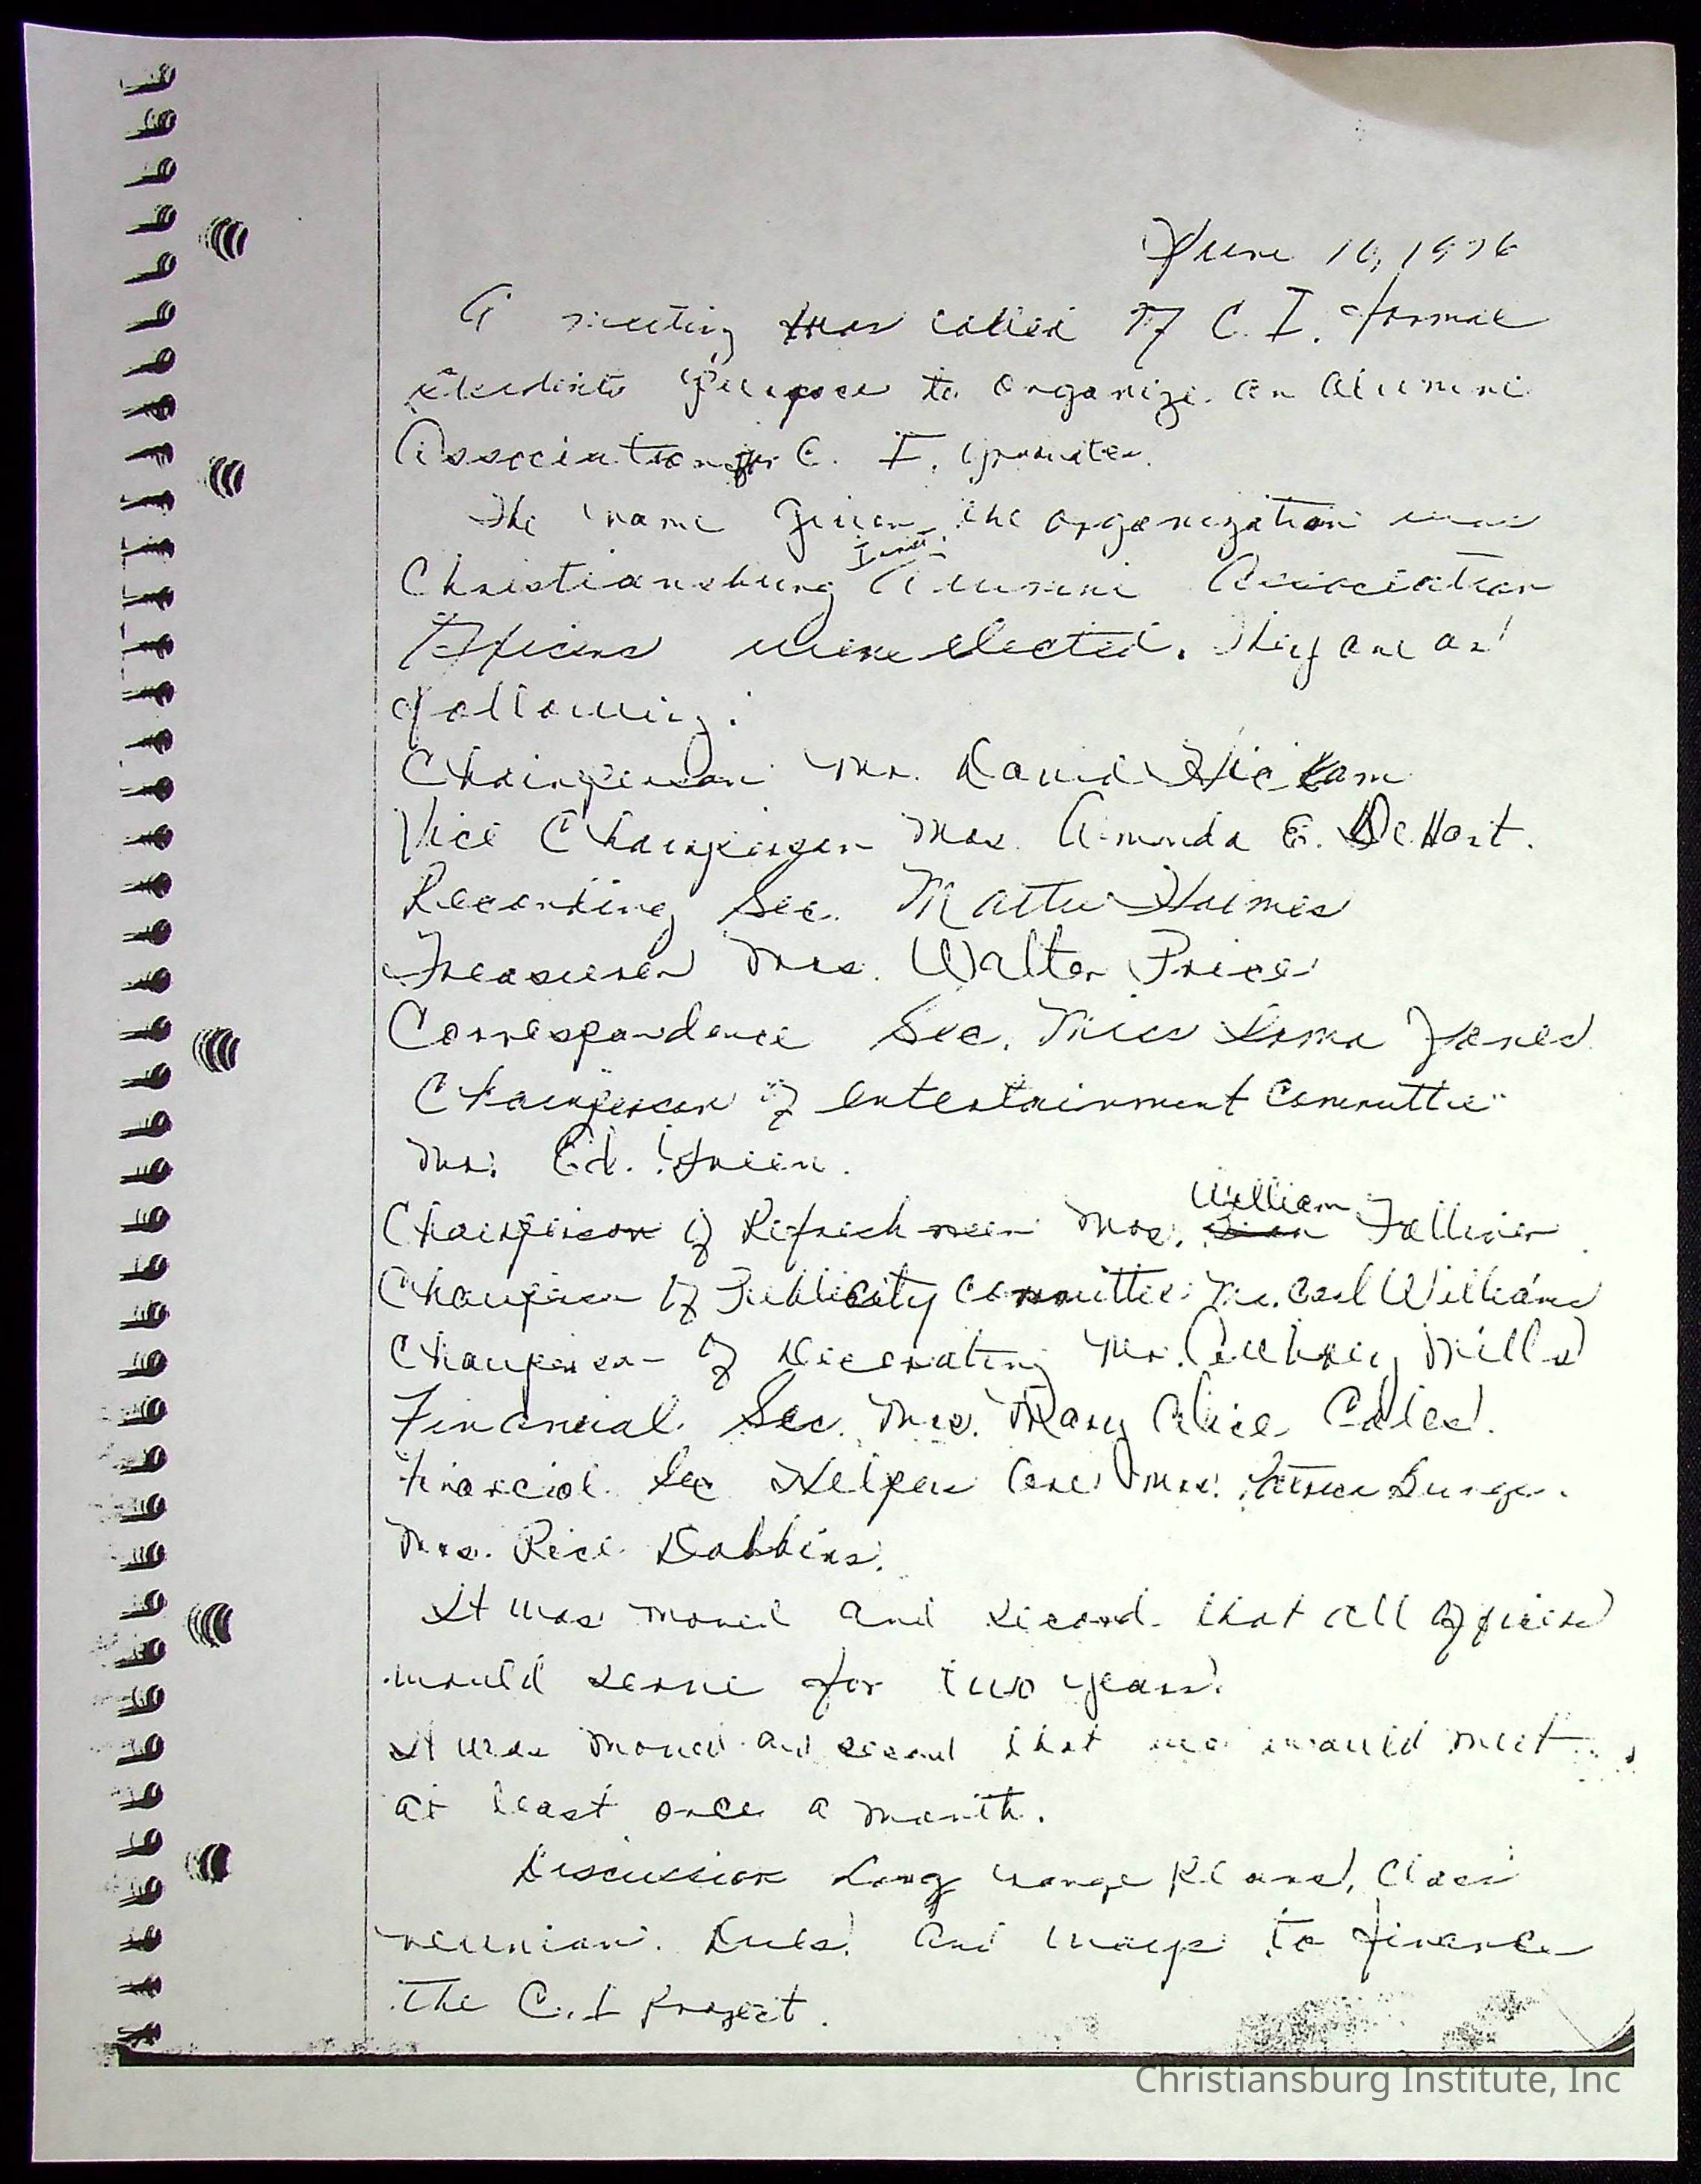 June 10, 1976
A meeting was called of C. I. formal
students purpose to organize an alumni
Association for C. I. graduates.
The name given the organization was
Inst.
Christiansburg Alumni Association
Officers were elected. They are as
following:
Chairperson Mr. David Hickam
Vice Chairperson Mrs. Amanda E. DeHart.
Recording Sec. Mattie Holmes
Treasurer Mrs. Walter Price
Correspondence Sec. Miss Erma Jones
Chairperson of entertainment Committee
Mr. Ed. Green.
William
Chairperson of Refreshmen Mrs. Falliner
Chairperson of Publicity Committee Mr. Carl Williams
Chairperson of Decorating Mr. Aubrey Mills
Financial Sec. Mrs. Mary Alice Coles.
Financial Sec Helpers are Mrs.
Mrs. Rice Dobbins.
It was moved and second that all officers
would serve for two years.
It was moved and second that we would meet
at least once a month.
Discussion Long range plans, Class
reunion. Dues. and ways to finance
the C. I Project.
Christiansburg Institute, Inc